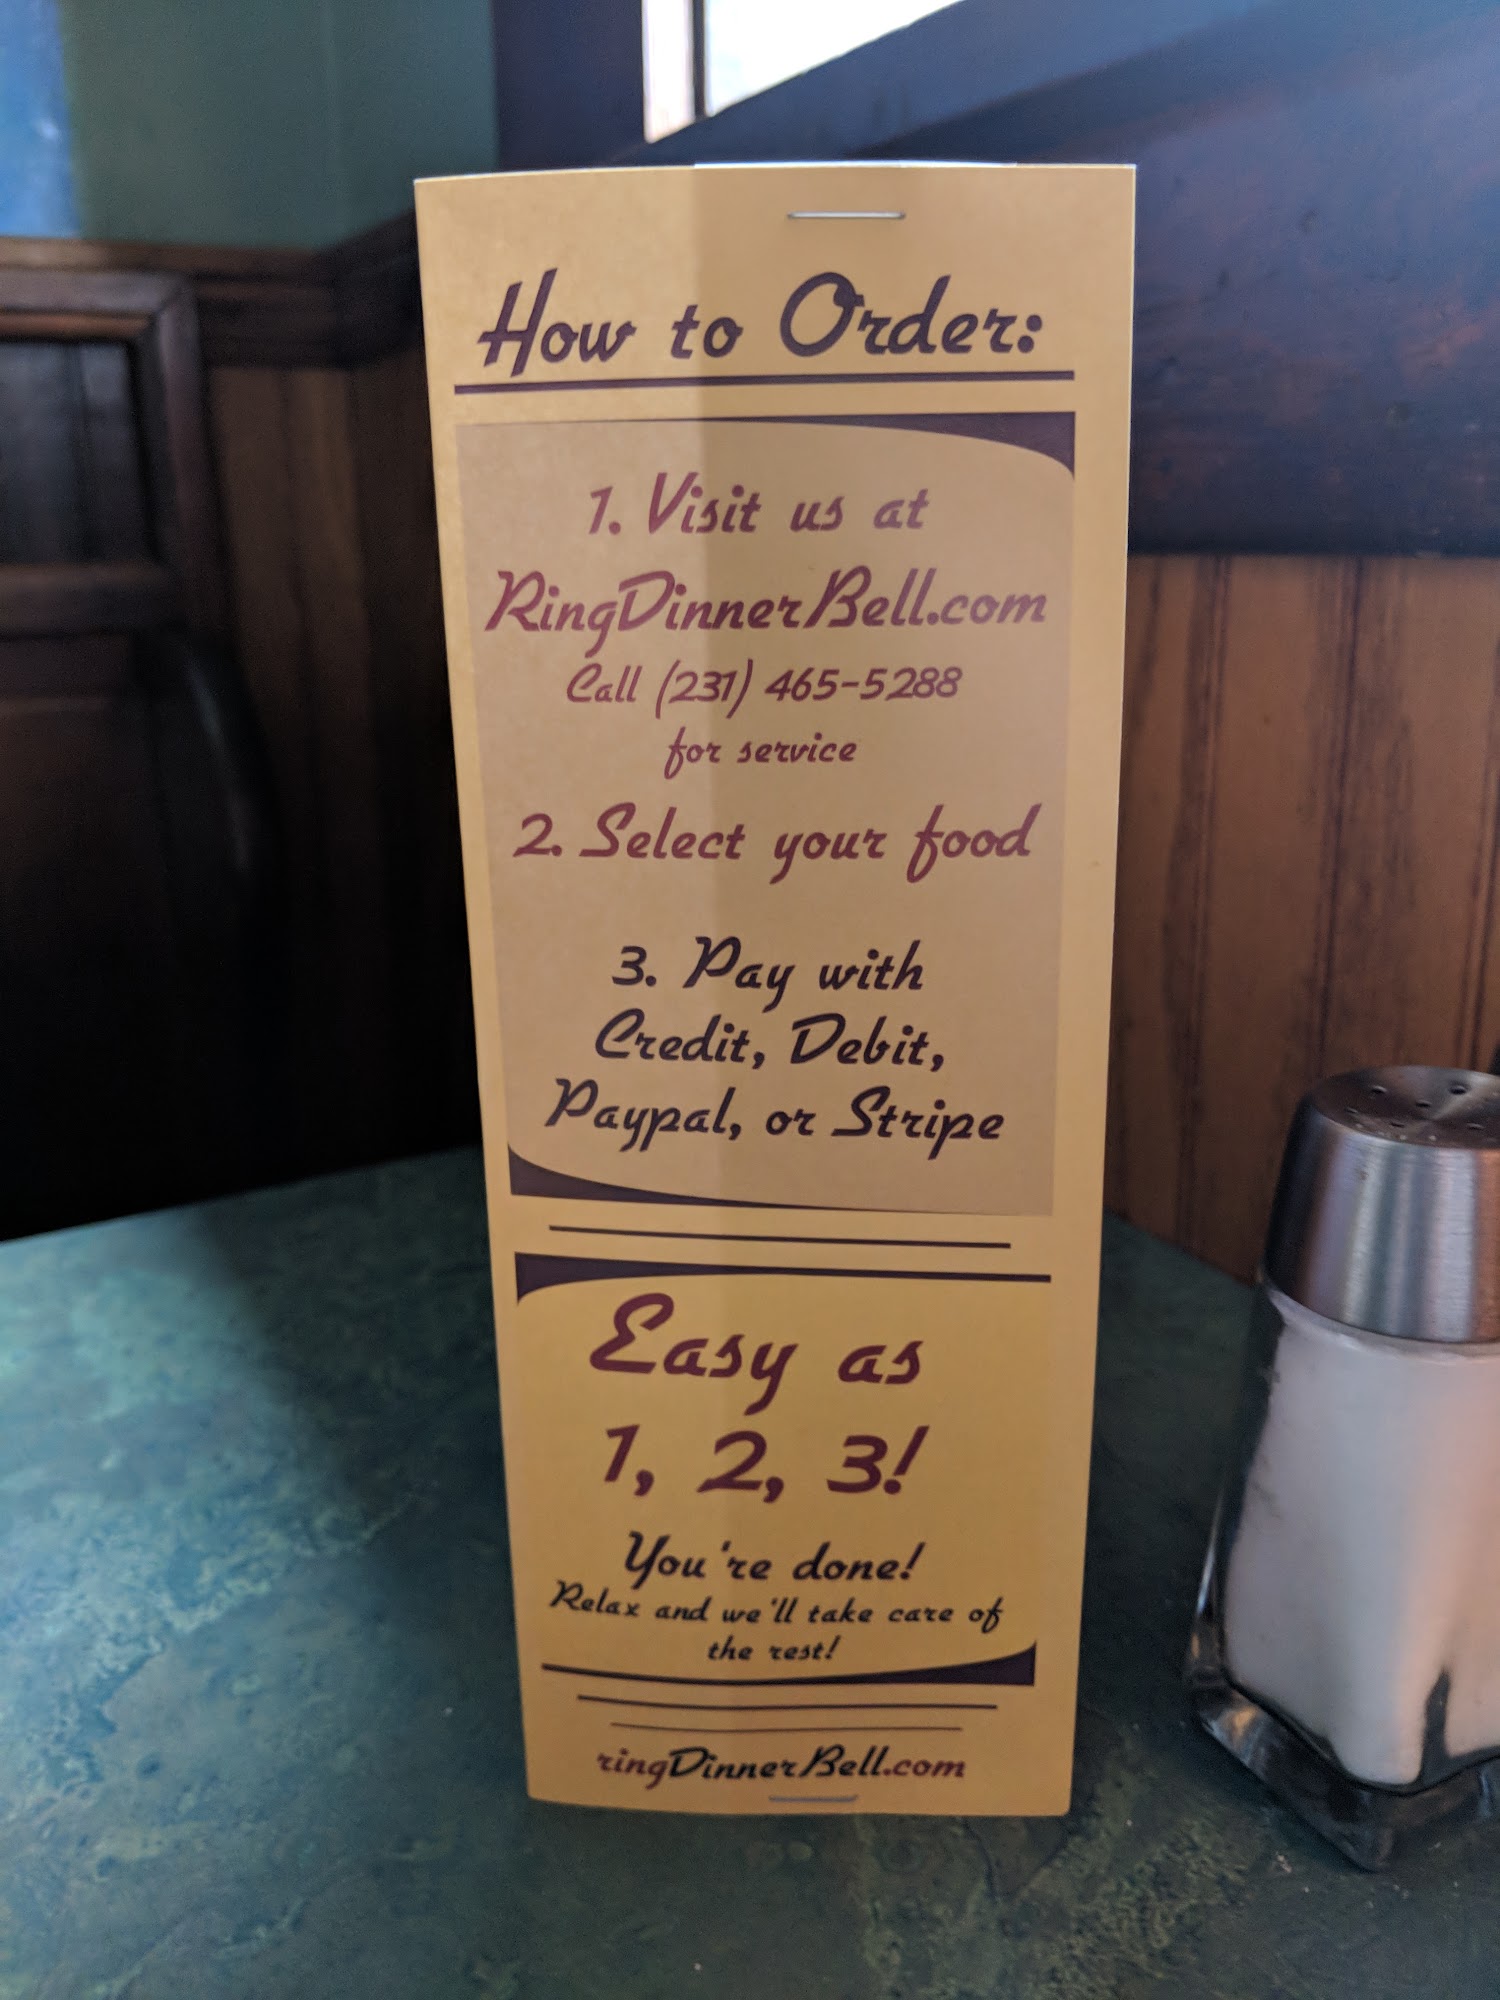 How to Order:
1. Visit us at
RingDinnerBell.com
Call (231) 465-5288
for service
2. Select your food
3. Pay with
Credit, Debit,
Paypal, or Stripe
Easy as
1, 2, 3!
You're done!
Relax and we'll take care of
the rest!
ringDinnerBell.com